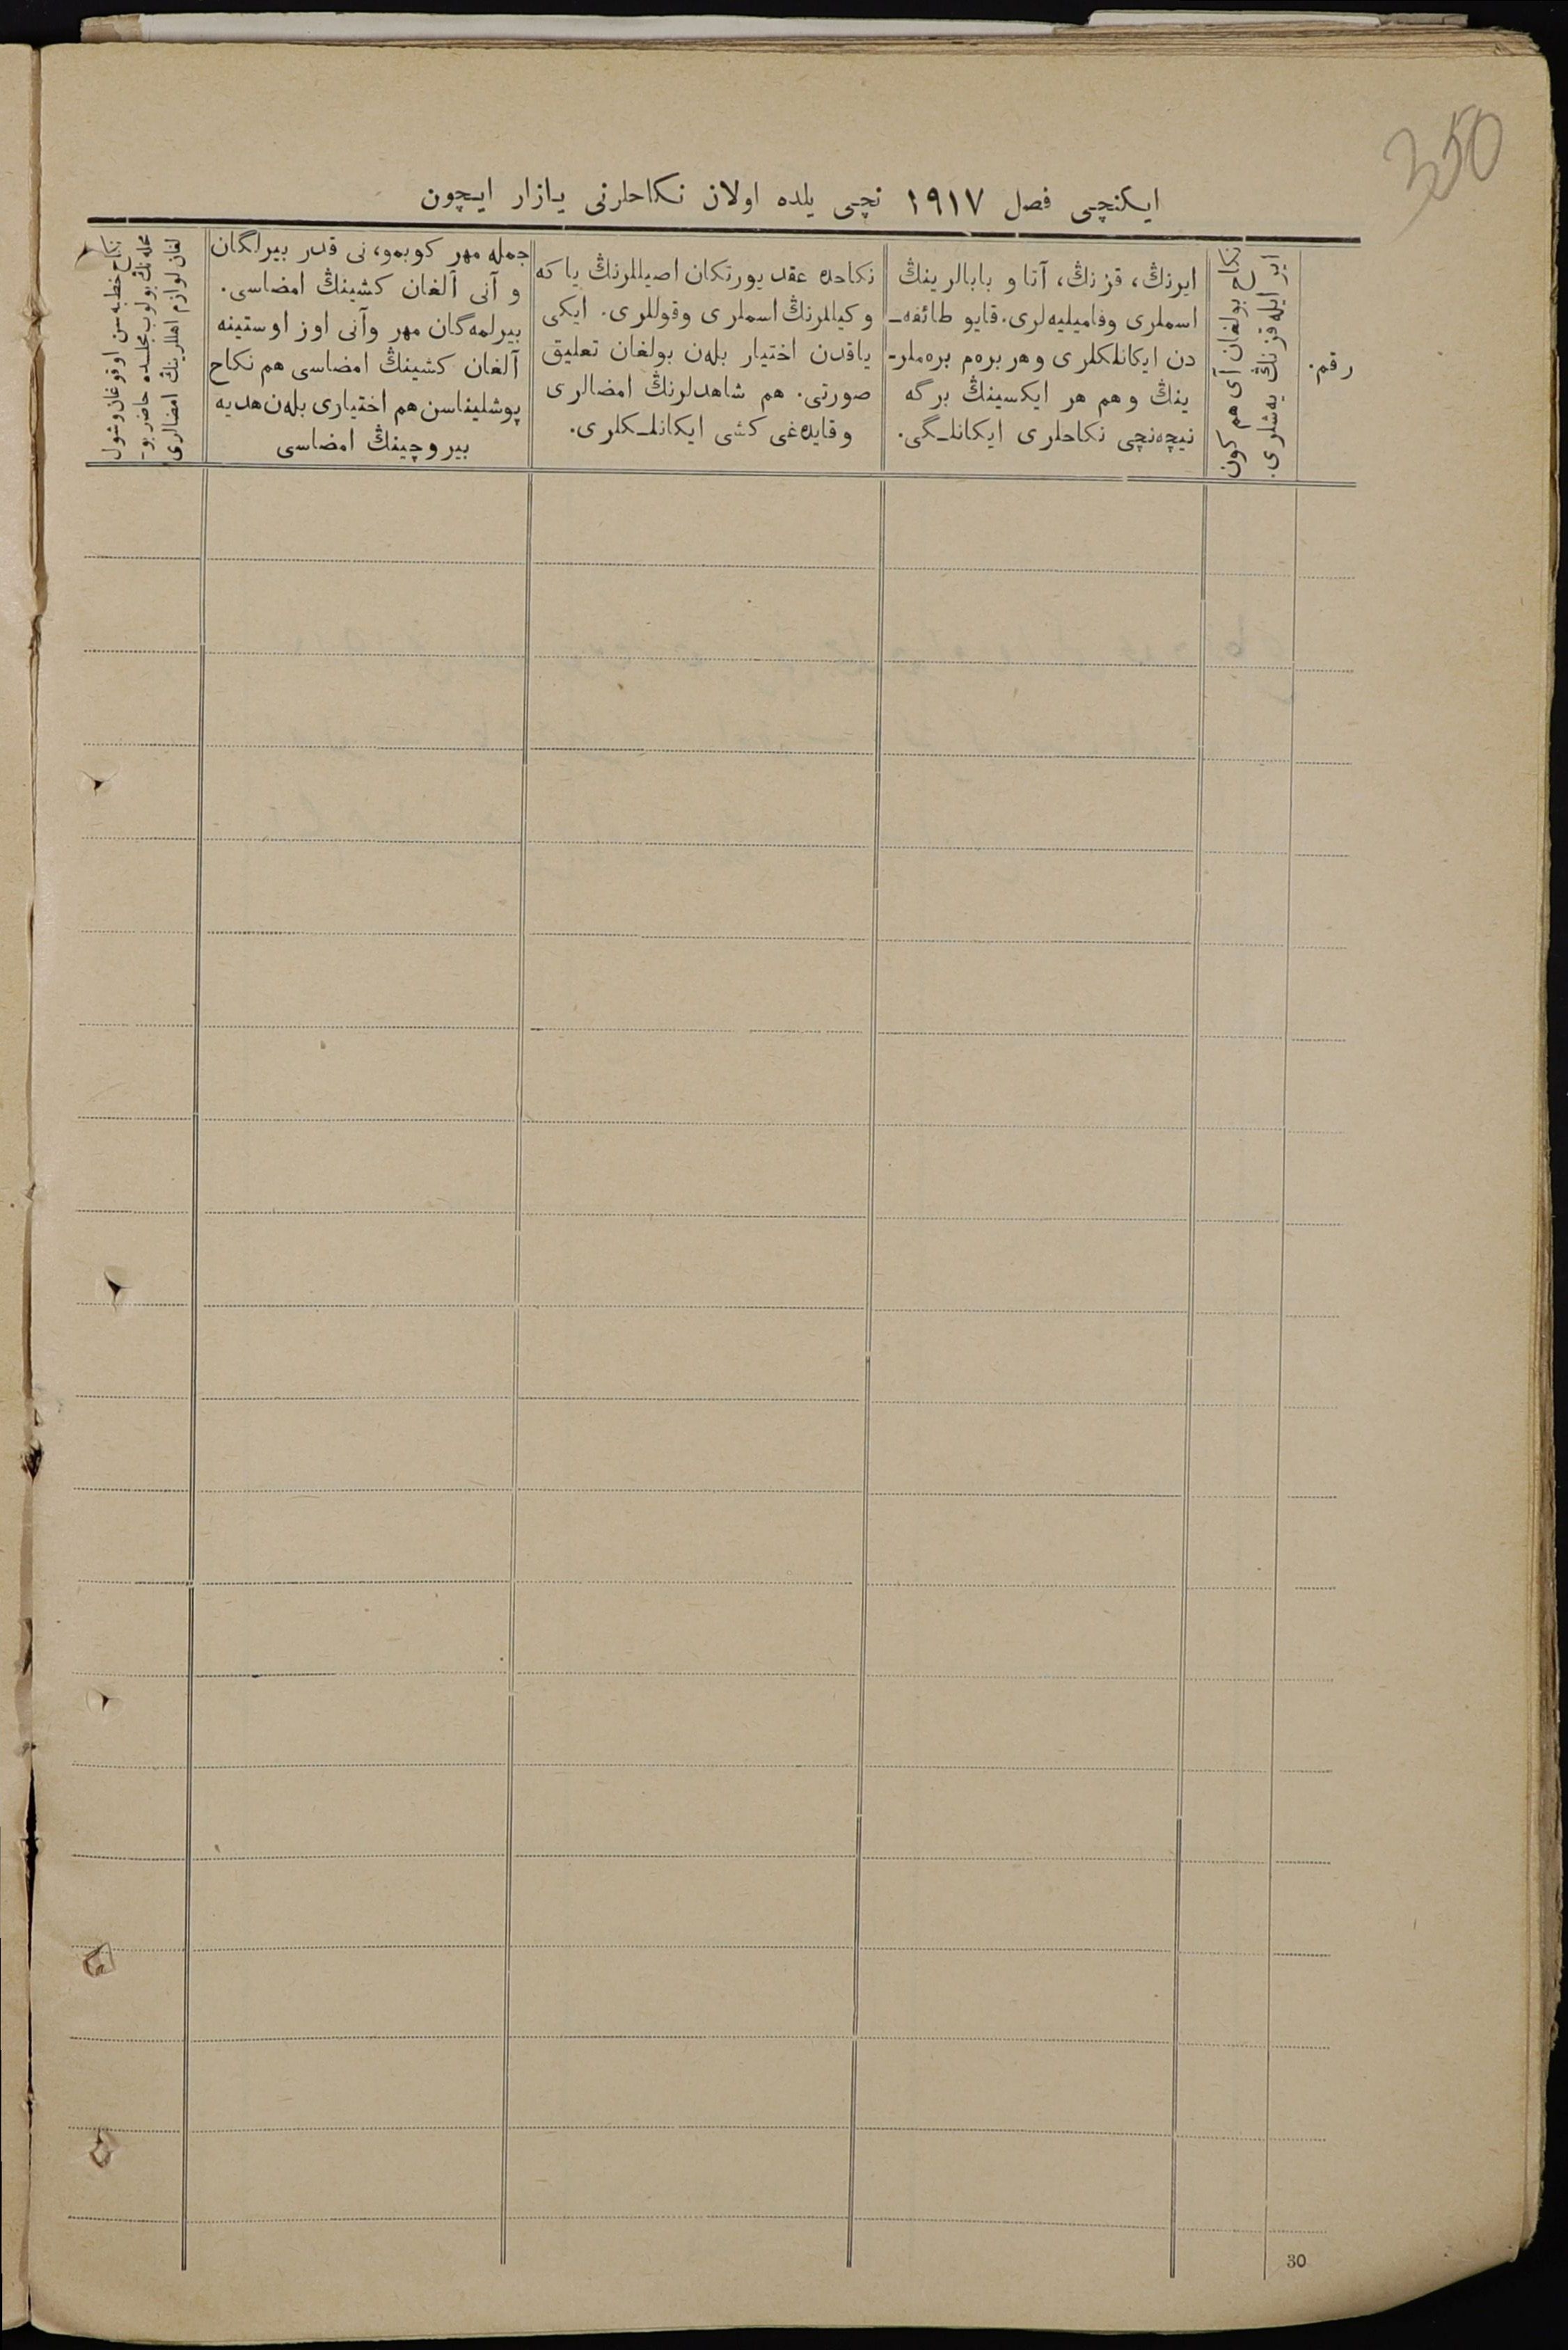 350
ایکنچی فصل ١٩١٧ نچی یلده اولان نکاحلرنی یازار ایچون
رقم.
ایر ایله قزنڭ یه‌شلری.
نکاح بولغان آی هم کون
ایرنڭ، قزنڭ، آتا و بابالرینڭ
اسملری وفامیلیه‌لری. قایو طائفه‌ـ
دن ایکانلکلری وهر بره‌م بره‌ملرـ
ینڭ وهم هر ایکسینڭ برگه
نیچه‌نچی نکاحلری ایکانلـگی.
نکاحده عقد یورتکان اصیللرنڭ یا که
وکیللرنڭ اسملری وقوللری. ایکی
یاقدن اختیار بله‌ن بولغان تعلیق
صورتی. هم شاهدلرنڭ امضالری
وقایده‌غی کشی ایکانلـکلری.
جمله مهر کوبمو، نی قدر بیرلگان
و آنی آلغان کشینڭ امضاسی.
بیرلمه‌گان مهر وآنی اوز اوستینه
آلغان کشینڭ امضاسی هم نکاح
پوشلیناسن هم اختیاری بله‌ن هدیه
بیروچینڭ امضاسی
نکاح خطبه‌سن اوقوغان وشول
محله‌نڭ بولوب مجلسده حاضر بوـ
لغان لوازم اهللرینڭ امضالری
30